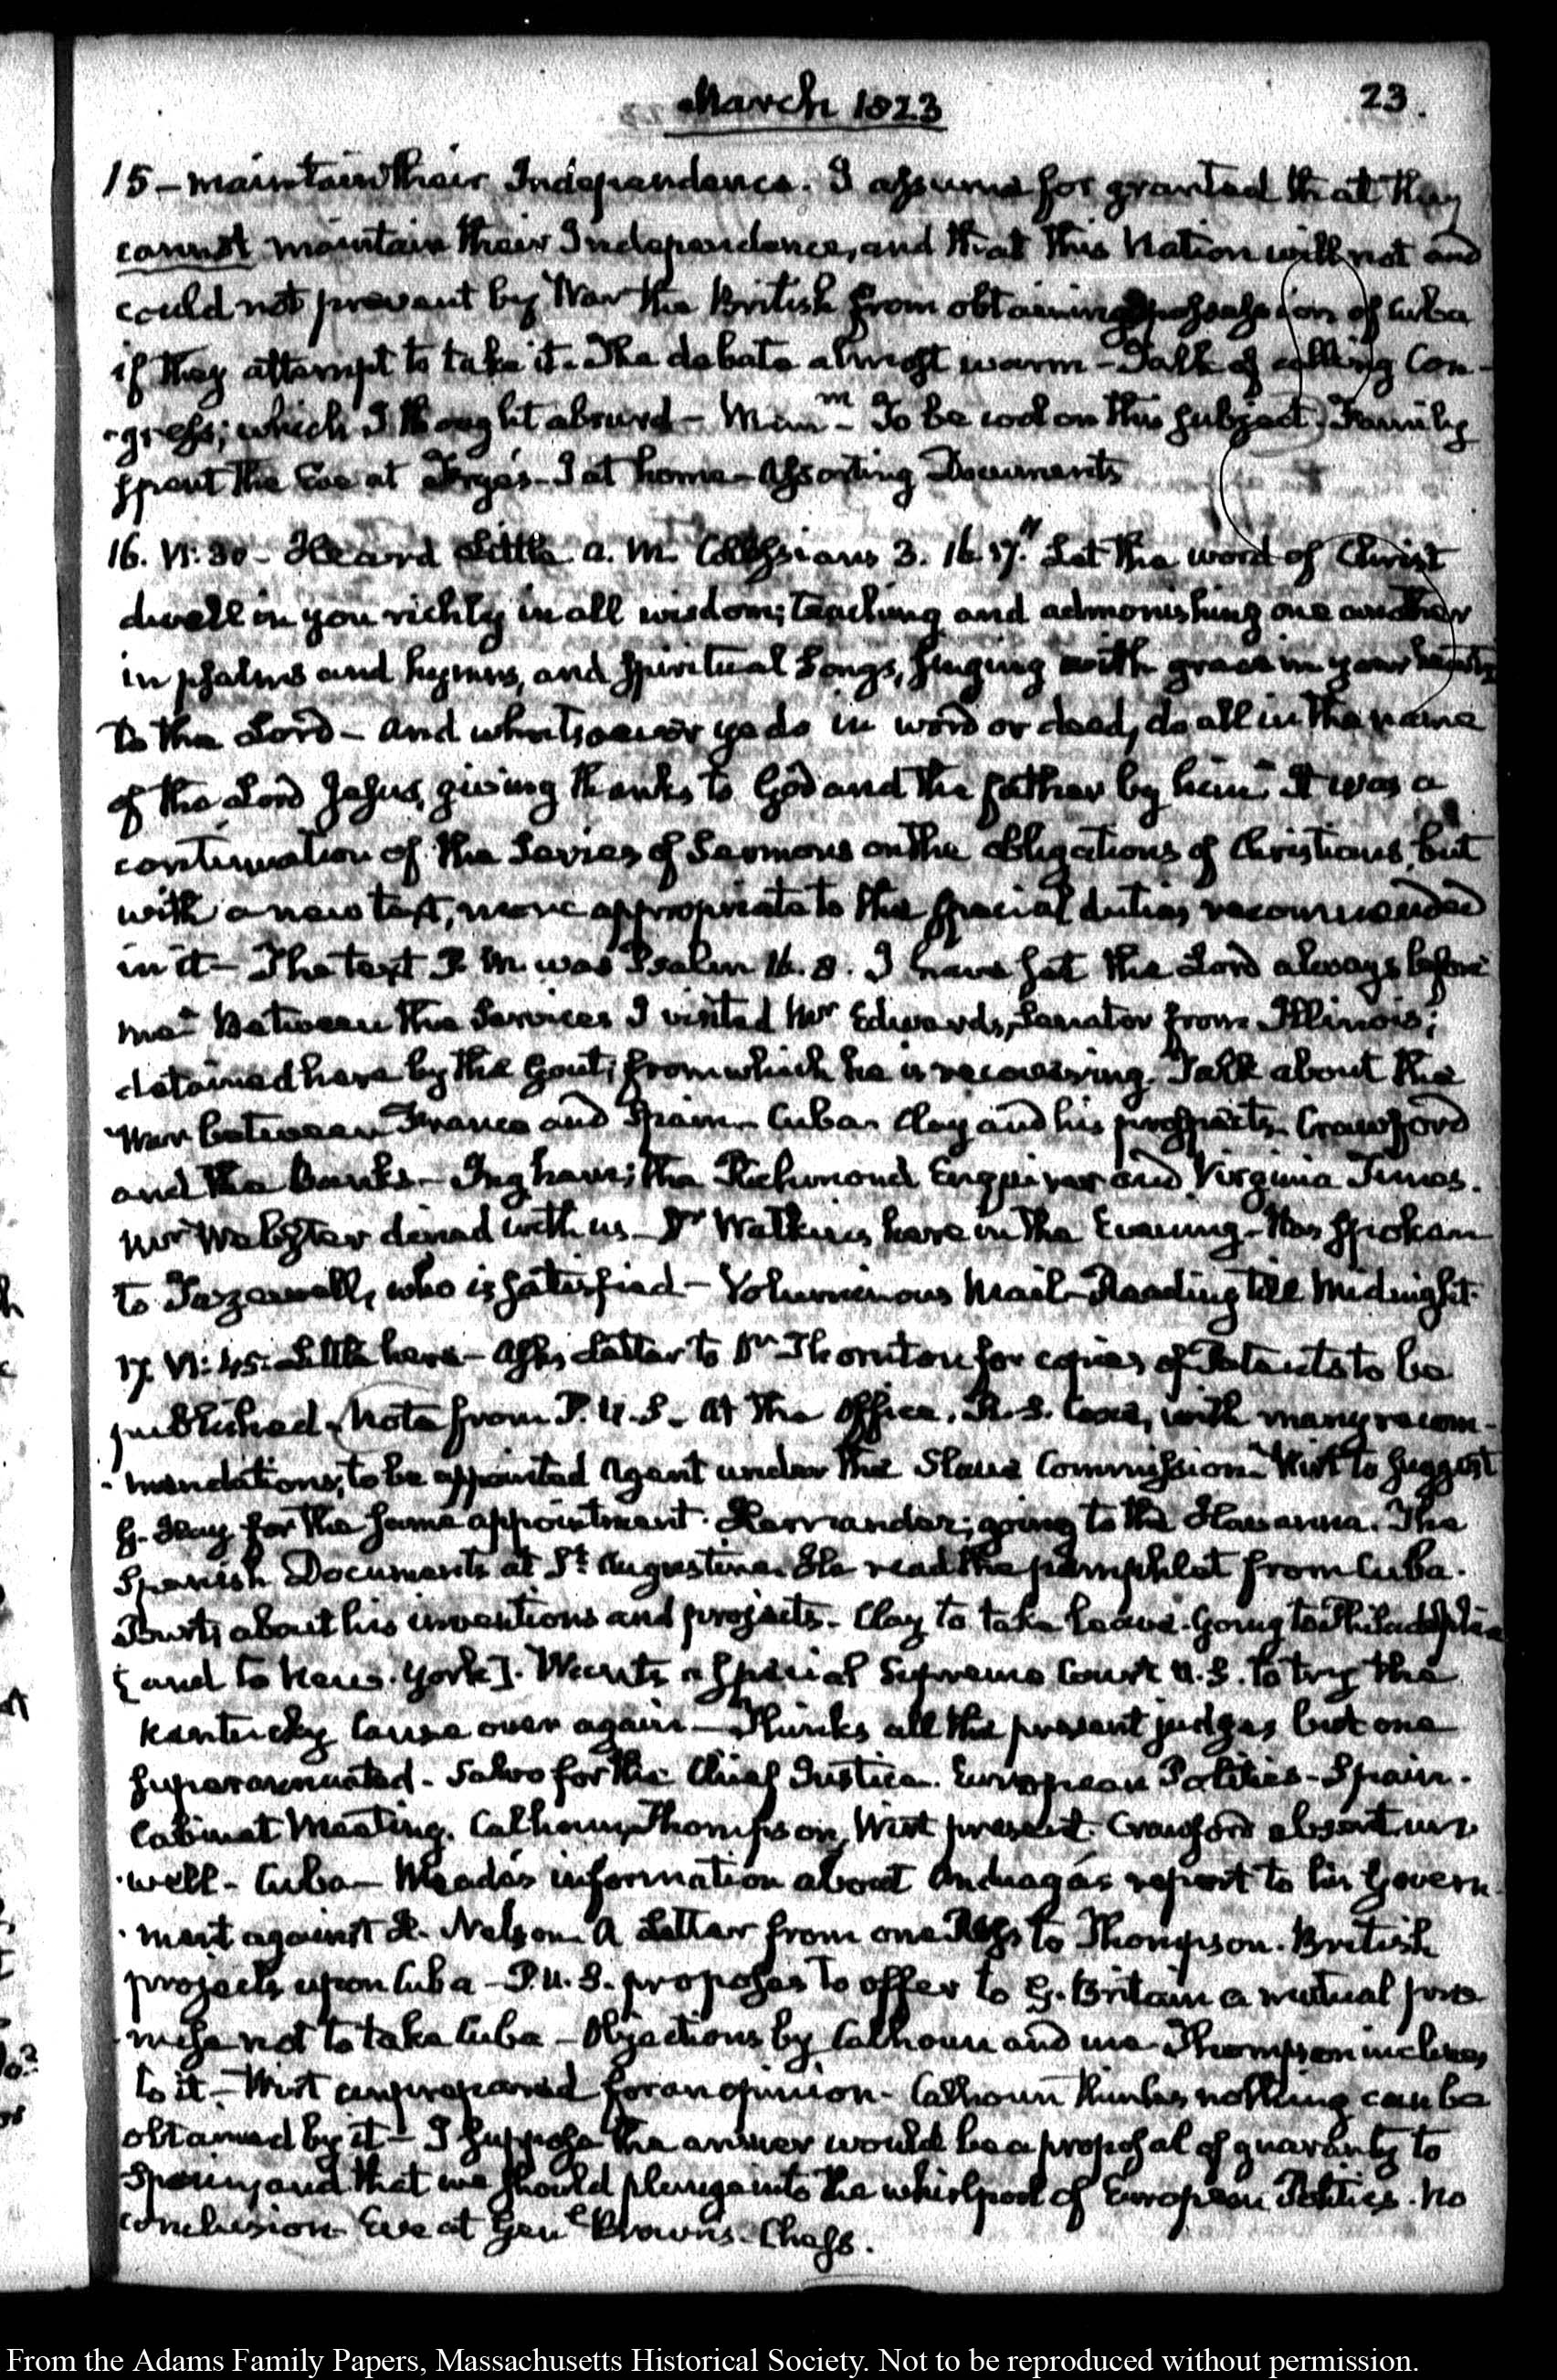 March 1823
23.
15 - maintain their Independence. I assume for granted that they
cannot maintain their Independence, and that this Nation will not and
could not prevent by War the British from obtaining possession of Cuba
if they attempt to take it. The debate almost warm - Talk of calling Con-
-gress; which I thought absurd - Mem.m To be cool on this subject. Family
spent the Eve at Frye's - I at home - Assorting Documents
16. VI:30 - Heard Little A.M. Colossians 3. 16. 17. "Let the word of Christ
dwell in you richly in all wisdom; teaching and admonishing one another
in psalms and hymns, and spiritual Songs, singing with grace in your hearts
to the Lord - And whatsoever ye do in word or deed, do all in the name
of the Lord Jesus, giving thanks to God and the father by him" It was a
continuation of the Series of Sermons on the obligations of Christians, but
with a new text, more appropriate to the special duties recommended
in it - The text P.M. was Psalm 16. 8. I have set the Lord always before
me" Between the Services I visited Mr Edwards, Senator from Illinois;
detained here by the Gout; from which he is recovering. Talk about the
War between France and Spain - Cuba - Clay and his prospects. Crawford
and the Banks - Ingham; the Richmond Enquirer and Virginia Times.
Mr Webster dined with us - Dr Watkins here in the Evening - Has spoken
to Tazewell, who is satisfied - Voluminous Mail - Reading till Midnight.
17. VI:45. Little here - Asks Letter to Dr Thornton for copies of Patents to be
published. Note from P.U.S. At the Office. R. S. Coxe, with many recom-
-mendations, to be appointed Agent under the Slave Commission. Wirt to suggest
G. Hay for the same appointment. Hernandez; going to the Havanna. The
Spanish Documents at St. Augustine. He read the pamphlet from Cuba.
about his inventions and projects. Clay to take leave. Going to Philadelphia
[and to New-York]. Wants a special Supreme Court U.S. to try the
Kentucky Cause over again - Thinks all the present judges but one
superannuated. Salvo for the Chief Justice. European Politics - Spain.
Cabinet Meeting. Calhoun, Thompson, Wirt present. Crawford absent, un-
-well - Cuba - Meade's information about Anduaga's report to his Govern-
-ment against H. Nelson. A Letter from one Ross to Thompson. British
projects upon Cuba - P.U.S. proposes to offer to G. Britain a mutual pro-
-mise not to take Cuba - Objections by Calhoun and me - Thompson inclines
to it. - Wirt unprepared for an opinion. Calhoun thinks nothing can be
obtained by it - I suppose the answer would be a proposal of guaranty to
Spain, and that we should plunge into the whirlpool of European Politics. No
conclusion. Eve at Genl Brown's. Chess.
From the Adams Family Papers, Massachusetts Historical Society. Not to be reproduced without permission.